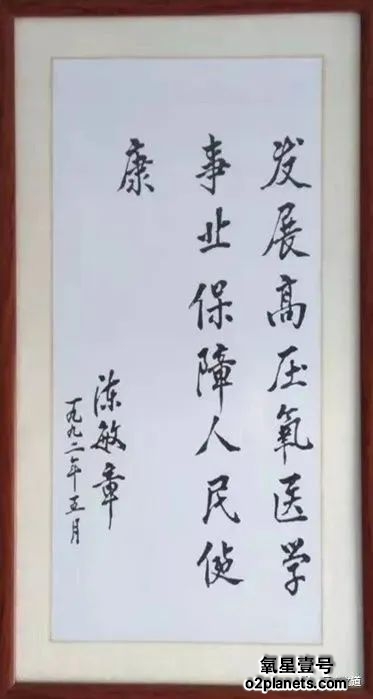 发展高压氧医学
事业保障人民健
康
陈敏章
一九九二年五月
氧星壹号
o2planets.com